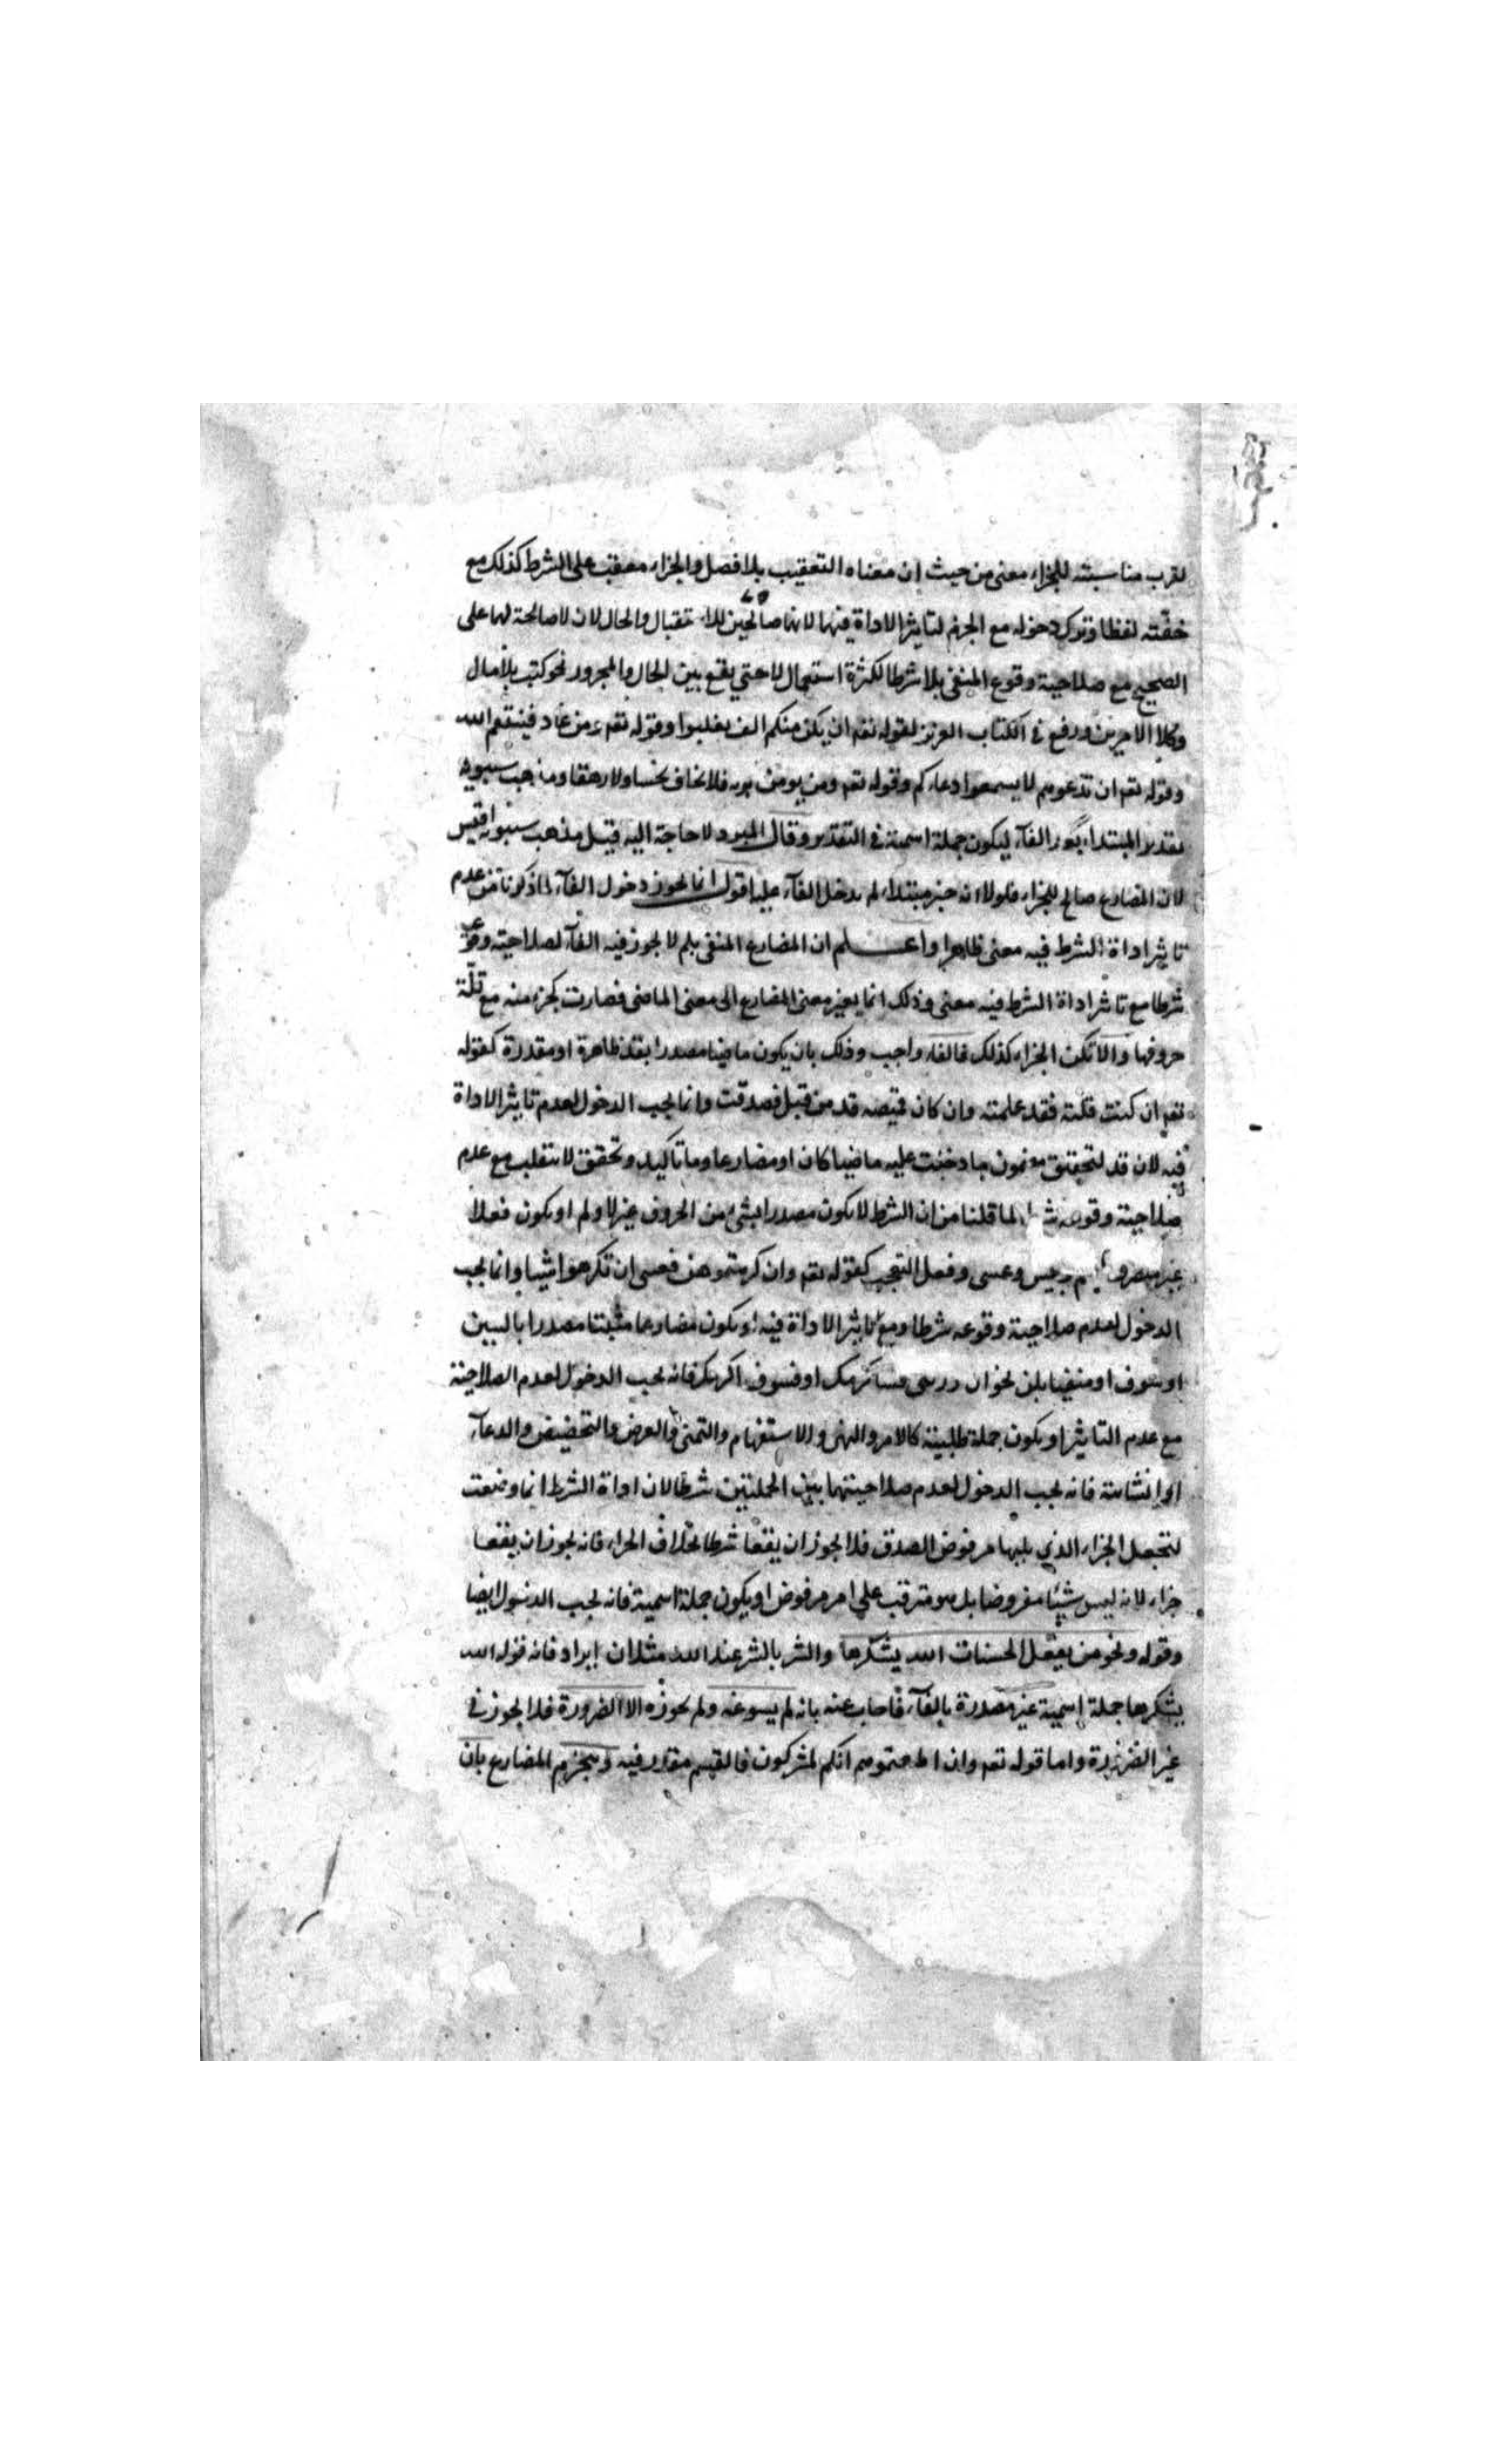 لقرب مناسبته للجزاء معنى من حيث ان معناه التعقيب بلا فصل والجزاء معقب على الشرط كذلك مع
خفته لفظا وترك دخوله مع الجزم لتاثير الاداة فيهما لانهما صالحين للاستقبال والحال لان لا صالحة لهما على
الصحيح مع صلاحية وقوع المنفى بلا شرطا لكثرة استعمال لا حتى يقع بين الحال والمجرور نحو كتب بلا مال
وكلا الامرين ورفع في الكتاب العزيز لقوله تعه ان يكن منكم الف يغلبوا وقوله تعه ومن عاد فينتقم الله
وقوله تعه ان تدعوهم لا يسمعوا دعاءكم وقوله تعه ومن يومن بربه فلا يخاف بخسا ولا رهقا ومذهب سيبويه
تقدير المبتداء الفآء ليكون جملة اسمية في التقدير وقال المبرد لا حاجة اليه قيل مذهب سيبويه اقيس
لان المضارع صالح للجزاء فلولا انه خبر مبتداء لم يدخل الفآء عليه اقول انما يجوز دخول الفآء لما ذكرنا من عدم
تاثير اداة الشرط فيه معنى ظاهرا واعلم ان المضارع المنفى بلم لا يجوز فيه الفآء لصلاحيته وقوعه
شرطا مع تاثير اداة الشرط فيه معنى وذلك انما يغير معنى المضارع الى معنى الماضى فصارت كجزء منه مع قلة
حروفها والا تكن الجزاء كذلك فالفاء واجب وذلك بان يكون ماضيا مصدرا بقد ظاهرة او مقدرة كقوله
تعه ان كنت قلته فقد علمته وان كان قميصه قد من قبل فصدقت وانما يجب الدخول لعدم تاثير الاداة
فيه لان قد لتحقيق مضمون ما دخلت عليه ماضيا كان او مضارعا وما تاكيد وتحقق لا ينقلب مع عدم
صلاحية وقوعه لما قلنا من ان الشرط لا يكون مصدرا بشئ من الحروف غير لا ولم او يكون فعلا
غير وليس وعسى وفعل التعجب كقوله تعه وان كرهتموهن فعسى ان تكرهوا شيئا وانما يجب
الدخول لعدم صلاحية وقوعه شرطا ومع تاثير الاداة فيه او يكون مضارعا مثبتا مصدرا بالسين
او سوف او منفيا بلن نحو ان فساكرمك او فسوف اكرمك فانه يجب الدخول لعدم الصلاحية
مع عدم التاثير او يكون جملة طلبية كالامر والنهى والاستفهام والتمنى والعرض والتحضيض والدعآء
او انشائية فانه يجب الدخول لعدم صلاحيتهما بين الجملتين شرطا لان اداة الشرط انما وضعت
لتجعل الجزاء الذى يليها مفروض الصدق فلا يجوز ان يقعا شرطا بخلاف الجزاء فانه يجوز ان يقعا
جزاء لانه ليس شيئا مفروضا بل هو مترتب على امر مفروض او يكون جملة اسمية فانه يجب الدخول ايضا
وقوله ونحو من يفعل الحسنات الله يشكرها والشر بالشر عند الله مثلان ايراد فانه قوله الله
يشكرها جملة اسمية غير مصدرة بالفآء فاجاب عنه بانه لم يسوغه ولم يجوزه الا الضرورة فلا يجوز في
غير الضرورة واما قوله تعه وان اطعتموهم انكم لمشركون فالقسم مقدر فيه وينجزم المضارع بان